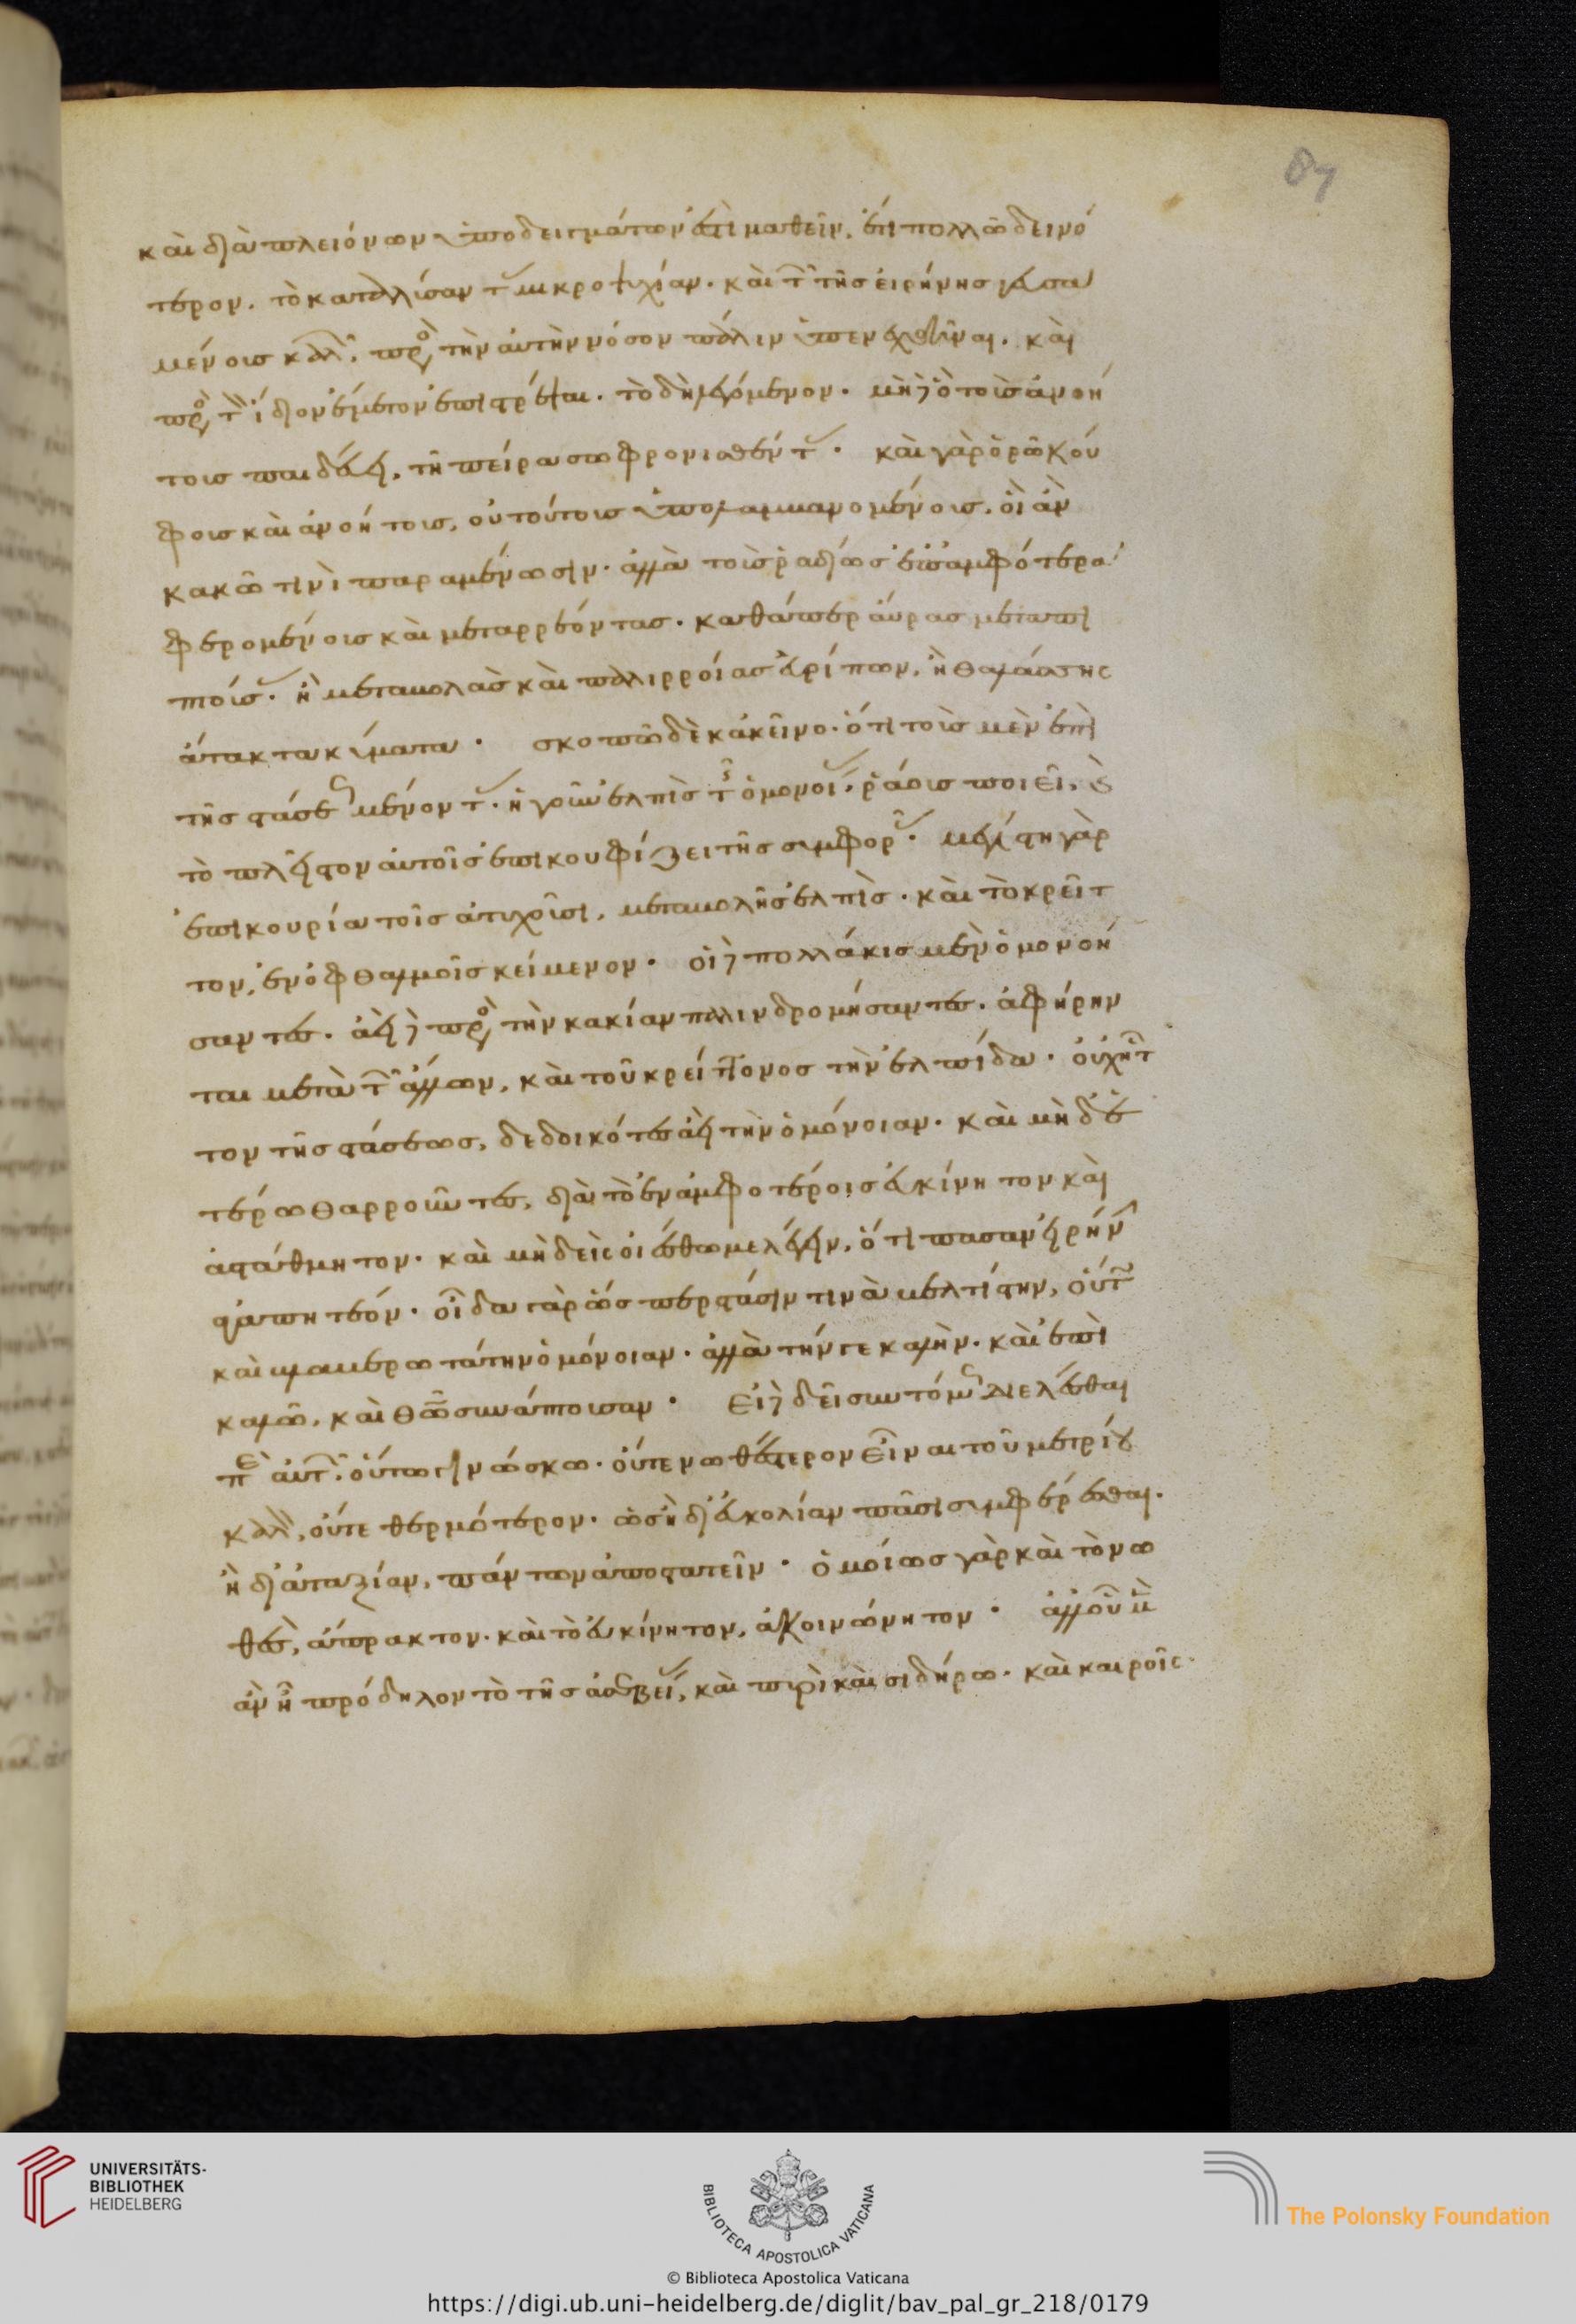 καὶ διὰ πλειόνων ὑποδειγμάτων ἐστὶ μαθεῖν. ἐπεὶ πολλῶ δεινό
τερον. τὸ καταλύσαντας μικροψυχίαν. καὶ τῶν τῆς εἰρήνης γευσα
μένους καλῶν. πρὸς τὴν αὐτὴν νόσον πάλιν ὑπενεχθῆναι. καὶ
πρὸς τὸν ἴδιον ἔμετον ἐπιστρέψαι. τὸ δὴ λεγόμενον. μὴ δὲ ὃ τοὺς ἀνοή
τους παιδεύει, τῆ πείρα σωφρονισθέντας. καὶ γὰρ ὁρῶ κού
φους καὶ ἀνοήτους, οὐ τούτους ὑπολαμβανομένους, οἳ ἂν
κακῶ τινὶ παραμένωσιν. ἀλλὰ τοὺς ῥαδίως ἐπαμφότερα
φερομένους καὶ μεταρρέοντας. καθάπερ αὔρας μεταπι
πτούσας. ἢ μεταβολὰς καὶ παλιρροίας εὐρίπων, ἢ θαλάσσης
ἄτακτα κύματα. σκοπῶ δὲ κἀκεῖνο. ὅτι τοὺς μὲν ἐπὶ
τῆς στάσεως μένοντας. ἡ γοῦν ἐλπὶς τῆς ὁμονοίας, ῥάους ποιεῖ, καὶ
τὸ πλεῖστον αὐτοῖς ἐπικουφίζει τῆς συμφορᾶς. μεγίστη γὰρ
ἐπικουρία τοῖς ἀτυχοῦσι, μεταβολῆς ἐλπὶς. καὶ τὸ κρεῖτ
τον, ἐν ὀφθαλμοῖς κείμενον. οἱ δὲ πολλάκις μὲν ὁμονοή
σαντες. ἀεὶ δὲ πρὸς τὴν κακίαν παλινδρομήσαντες. ἀφήρην
ται μετὰ τῶν ἄλλων, καὶ τοῦ κρείττονος τὴν ἐλπίδα. οὐχ ἧτ
τον τῆς στάσεως, δεδοικότες ἀεὶ τὴν ὁμόνοιαν. καὶ μηδε
τέρω θαρροῦντες, διὰ τὸ ἐν ἀμφοτέροις εὐκίνητον καὶ
ἀστάθμητον. καὶ μηδεὶς οἰέσθω με λέγειν, ὅτι πᾶσαν εἰρήνην
ἀγαπητέον. οἶδα γὰρ ὥσπερ στάσιν τινὰ βελτίστην, οὕτω
καὶ βλαβερωτάτην ὁμόνοιαν. ἀλλὰ τήν γε καλὴν. καὶ ἐπὶ
καλῶ, καὶ θῶ συνάπτουσαν. Εἰ δὲ δεῖ συντόμως διελέσθαι
περὶ αὐτῶν. οὕτω γινώσκω. οὔτε νωθέστερον εἶναι τοῦ μετρίου
καλὸν, οὔτε θερμότερον. ὡς ἢ δι εὐκολίαν πᾶσι συμφέρεσθαι.
ἢ δι ἀταξίαν, πάντων ἀποστατεῖν. ὁμοίως γὰρ καὶ τὸ νω
θὲς, ἄπρακτον. καὶ τὸ εὐκίνητον, ἀκοινώνητον. ἀλλ οὗ μὲν
ἂν ἦ πρόδηλον τὸ τῆς ἀσεβείας, καὶ πυρὶ καὶ σιδήρω. καὶ καιροῖς.
UNIVERSITÄTS-
BIBLIOTHEK
HEIDELBERG
BIBLIOTECA APOSTOLICA VATICANA
The Polonsky Foundation
© Biblioteca Apostolica Vaticana
https://digi.ub.uni-heidelberg.de/diglit/bav_pal_gr_218/0179